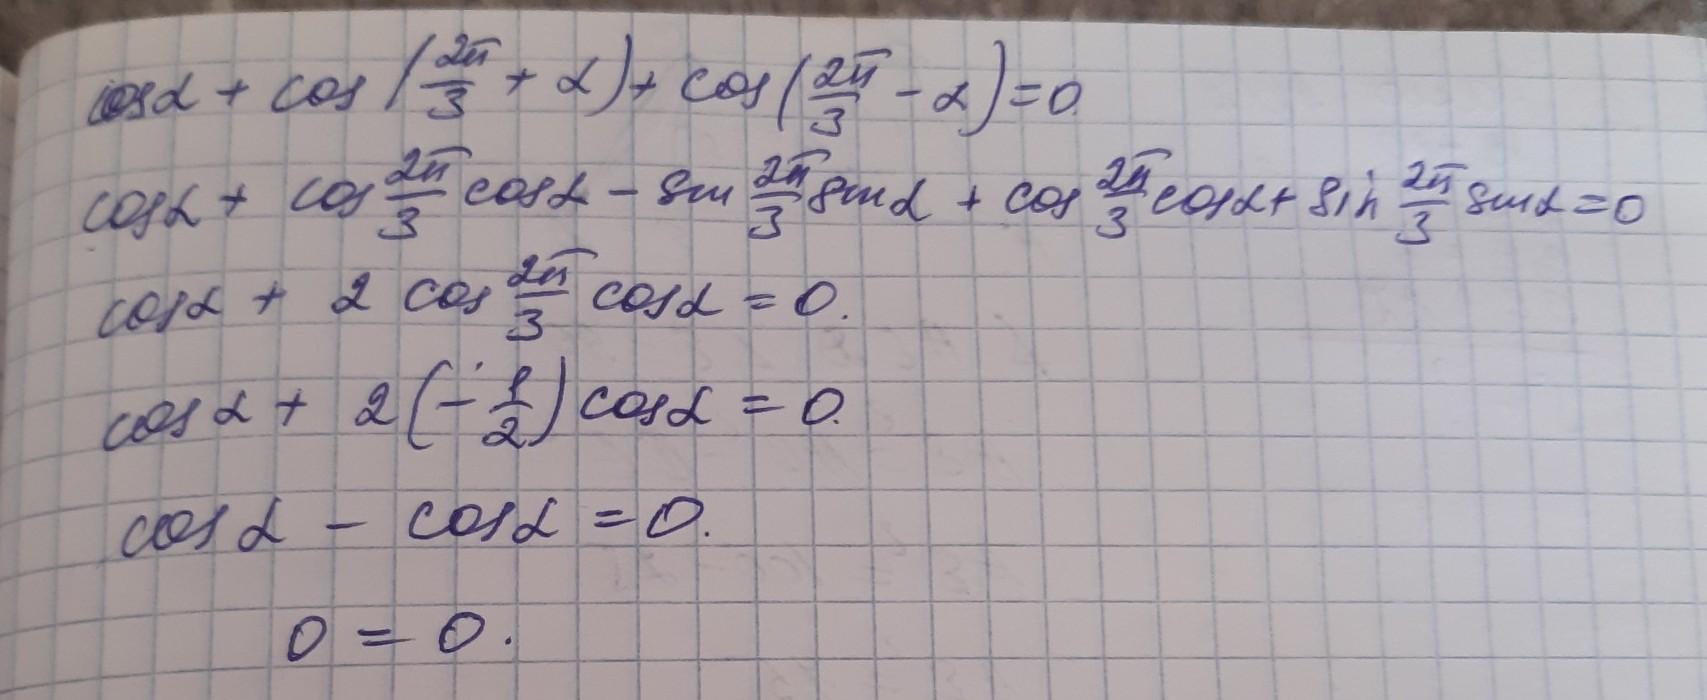 cosα + cos(2π/3 + α) + cos(2π/3 - α) = 0
cosα + cos 2π/3 cosα - sin 2π/3 sinα + cos 2π/3 cosα + sin 2π/3 sinα = 0
cosα + 2 cos 2π/3 cosα = 0.
cosα + 2(-1/2) cosα = 0.
cosα - cosα = 0.
0 = 0.